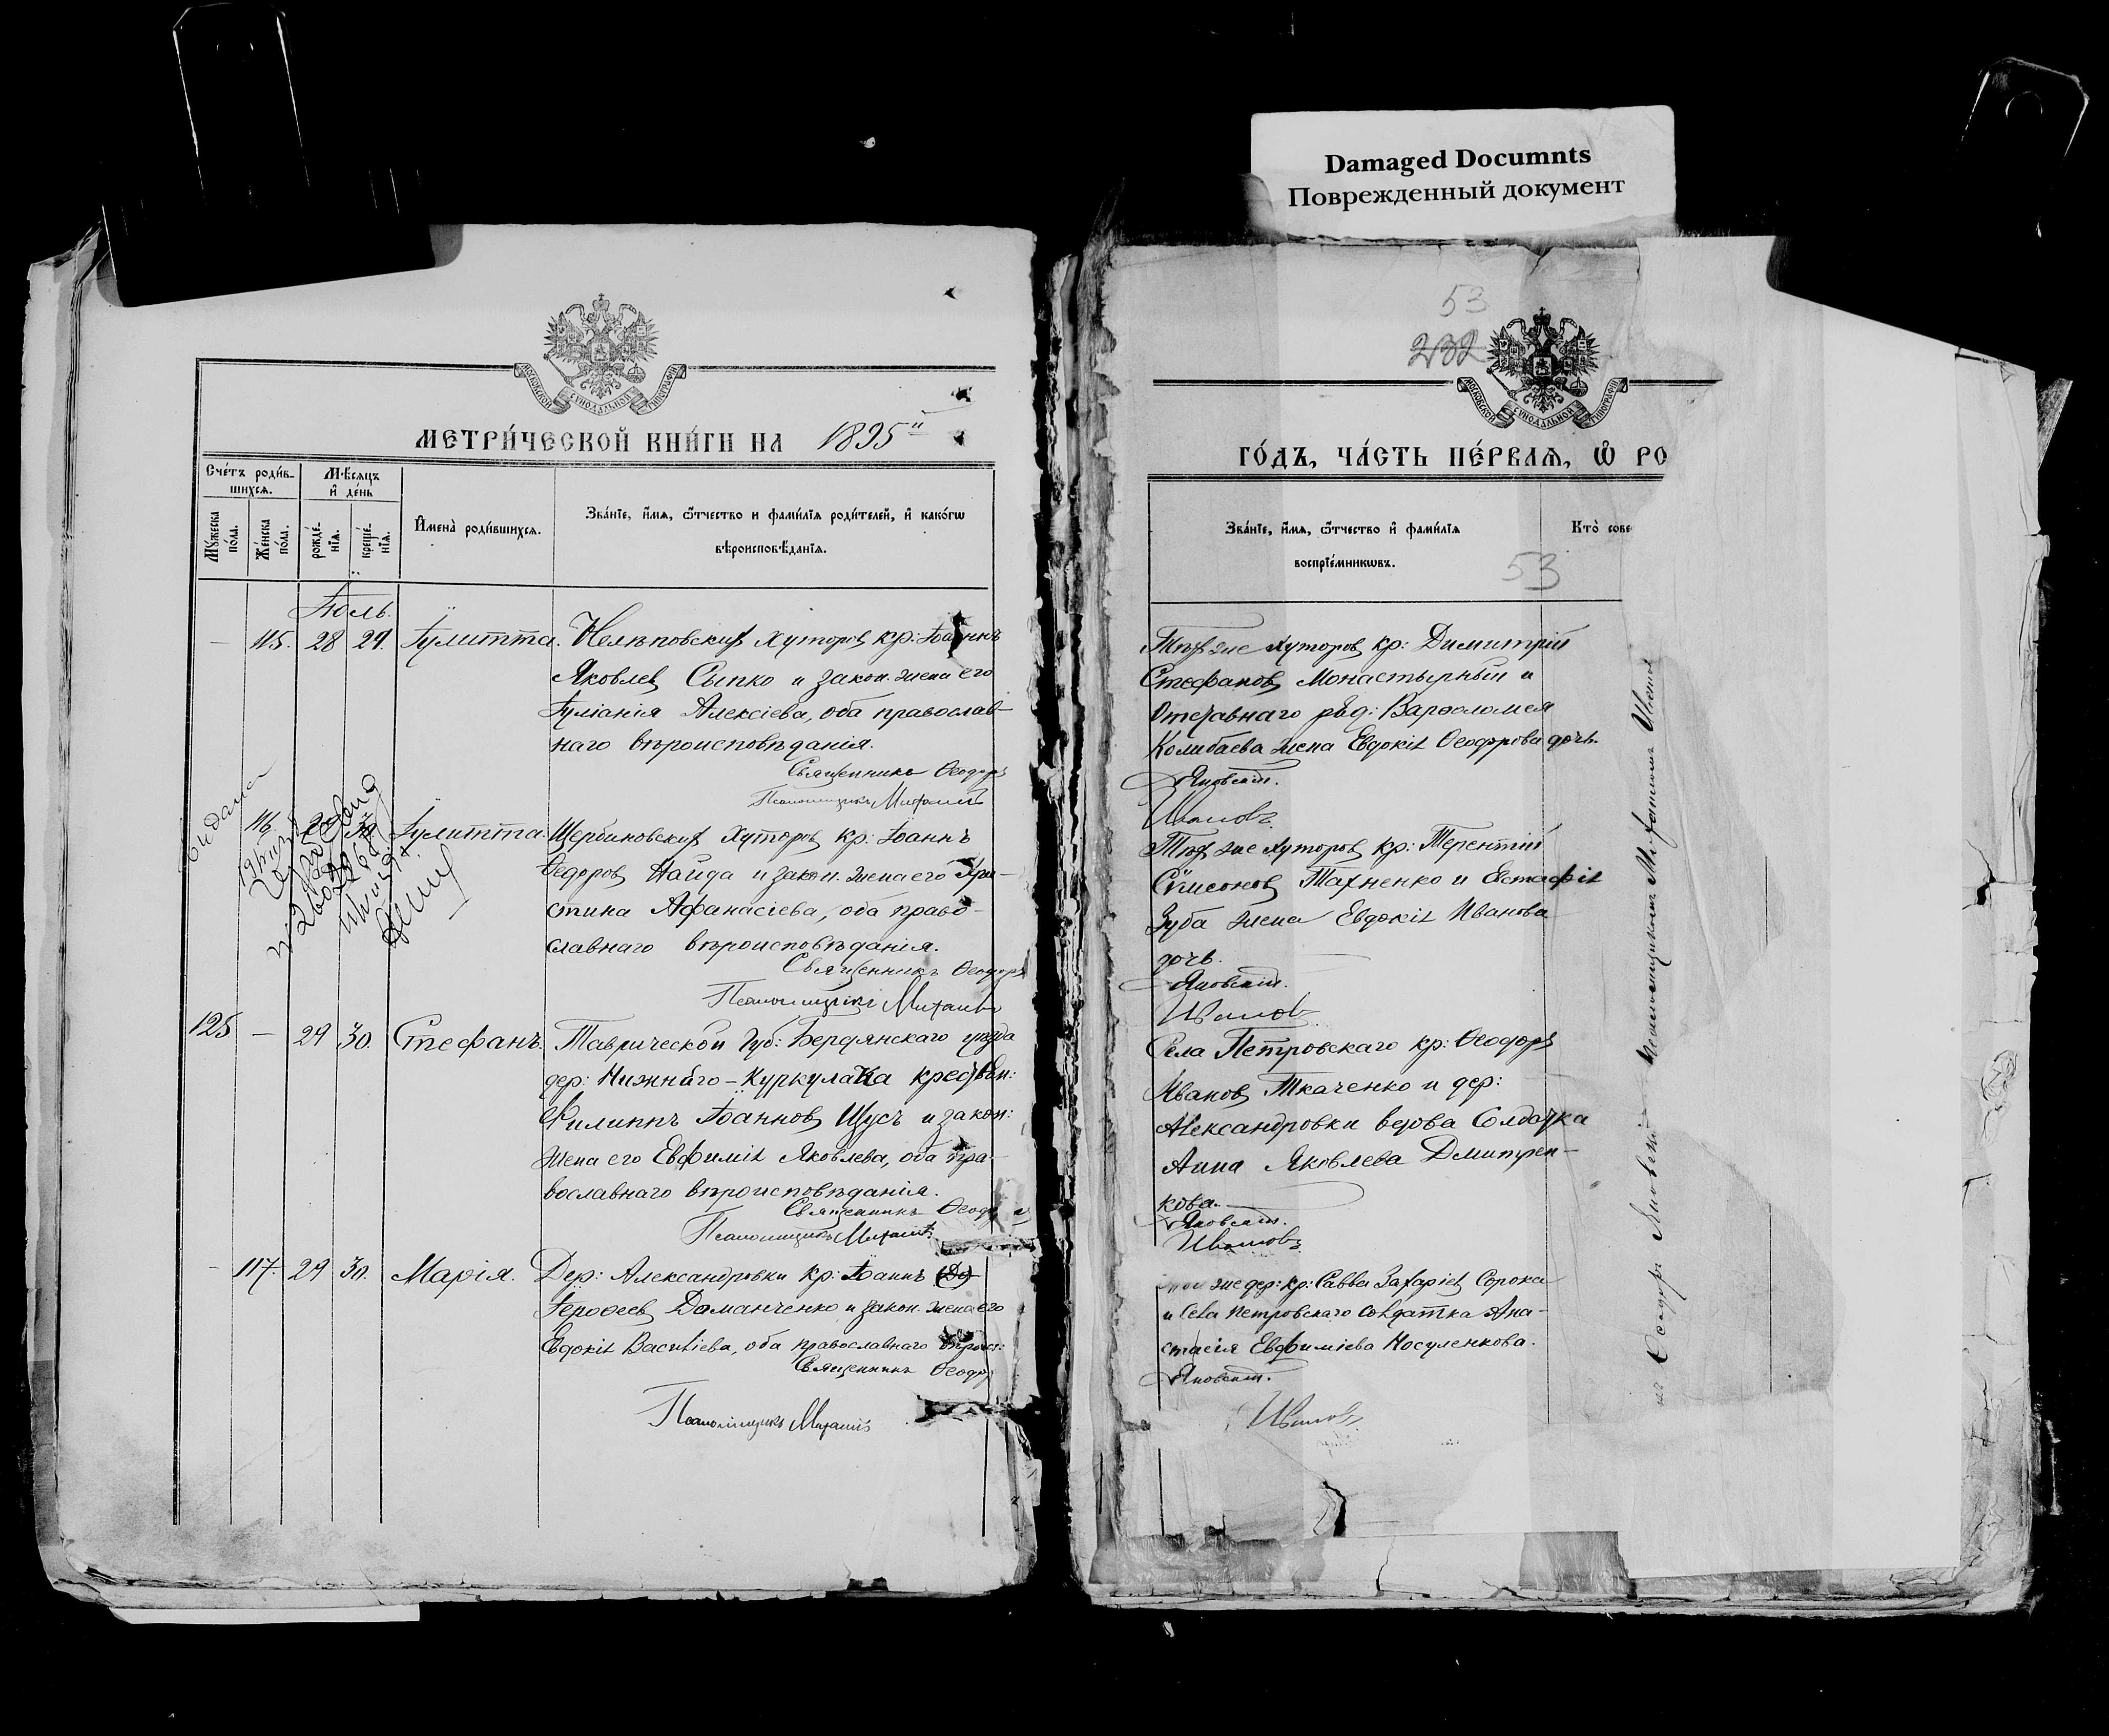 Damaged Documnts
Поврежденный документ
МОСКОВСКОЙ СѴНОДАЛЬНОЙ ТИПОГРАФІИ
МЕТРИ́ЧЕСКОЙ КНИ́ГИ НА 1895 й
Сче́тъ роди́в-
шихсѧ.
Мѣ́сѧцъ
и҆ де́нь
Мꙋ́жеска
по́ла.
Же́нска
по́ла.
рожде́-
нїѧ.
креще́-
нїѧ.
И҆мена̀ роди́вшихсѧ.
Зва́нїе, и҆́мѧ, ѻ҆́тчество и фами́лїѧ роди́телей, и҆ како́гѡ
вѣроисповѣ́данїѧ.
Іюль.
— 115. 28 29. Іулитта. Нелѣповскихъ Хуторовъ кр: Іоаннъ
Яковлевъ Сыпко и закон. жена его
Іуліанія Алексіева, оба православ-
наго вѣроисповѣданія.
Священникъ Ѳеодоръ
Псаломщикъ Михаилъ
выдана
116. 29 30. Іулитта. Щербиновскихъ Хуторовъ кр: Іоаннъ
Ѳедоровъ Найда и закон. жена его Хри-
стина Афанасіева, оба право-
славнаго вѣроисповѣданія.
Священникъ Ѳеодоръ
Псаломщикъ Михаилъ
125 — 29 30. Стефанъ. Таврической Губ: Бердянскаго уѣзда
дер: Нижняго-Куркулака крестьян:
Филиппъ Іоанновъ Щусь и закон:
жена его Евфимія Яковлева, оба пра-
вославнаго вѣроисповѣданія.
Священникъ Ѳеодоръ
Псаломщикъ Михаилъ
— 117. 29 30. Марія. Дер: Александровки кр: Іоаннъ
Іероѳеевъ Доманченко и закон. жена его
Евдокія Васильева, оба православнаго вѣроисп:
Священникъ Ѳеодоръ
Псаломщикъ Михаилъ
53
232
МОСКОВСКОЙ СѴНОДАЛЬНОЙ ТИПОГРАФІИ
ГО́ДЪ, ЧА́СТЬ ПЕ́РВАѦ, Ѡ҆ РО
Зва́нїе, и҆́мѧ, ѻ҆́тчество и҆ фами́лїѧ
воспрїе́мникѡвъ.
Кто̀ сове
53
Тѣхъ же хуторовъ кр: Димитрій
Стефановъ Монастырный и
Отставнаго ряд: Варѳоломея
Колибаева жена Евдокія Ѳеодорова дочь.
Яновскій.
Ивановъ.
Тѣхъ же хуторовъ кр: Терентій
Симоновъ Тахненко и Евстафія
Зуба жена Евдокія Иванова
дочь.
Яновскій.
Ивановъ
Села Петровскаго кр: Ѳеодоръ
Ивановъ Ткаченко и дер:
Александровки вдова Солдатка
Анна Яковлева Дмитрен-
кова.
Яновскій.
Ивановъ
же дер: кр: Савва Захаріевъ Сорока
и села Петровскаго солдатка Ана-
стасія Евфиміева Носуленкова.
Яновскій.
Ивановъ
Ѳеодоръ Яновскій Псаломщикомъ Михаиломъ